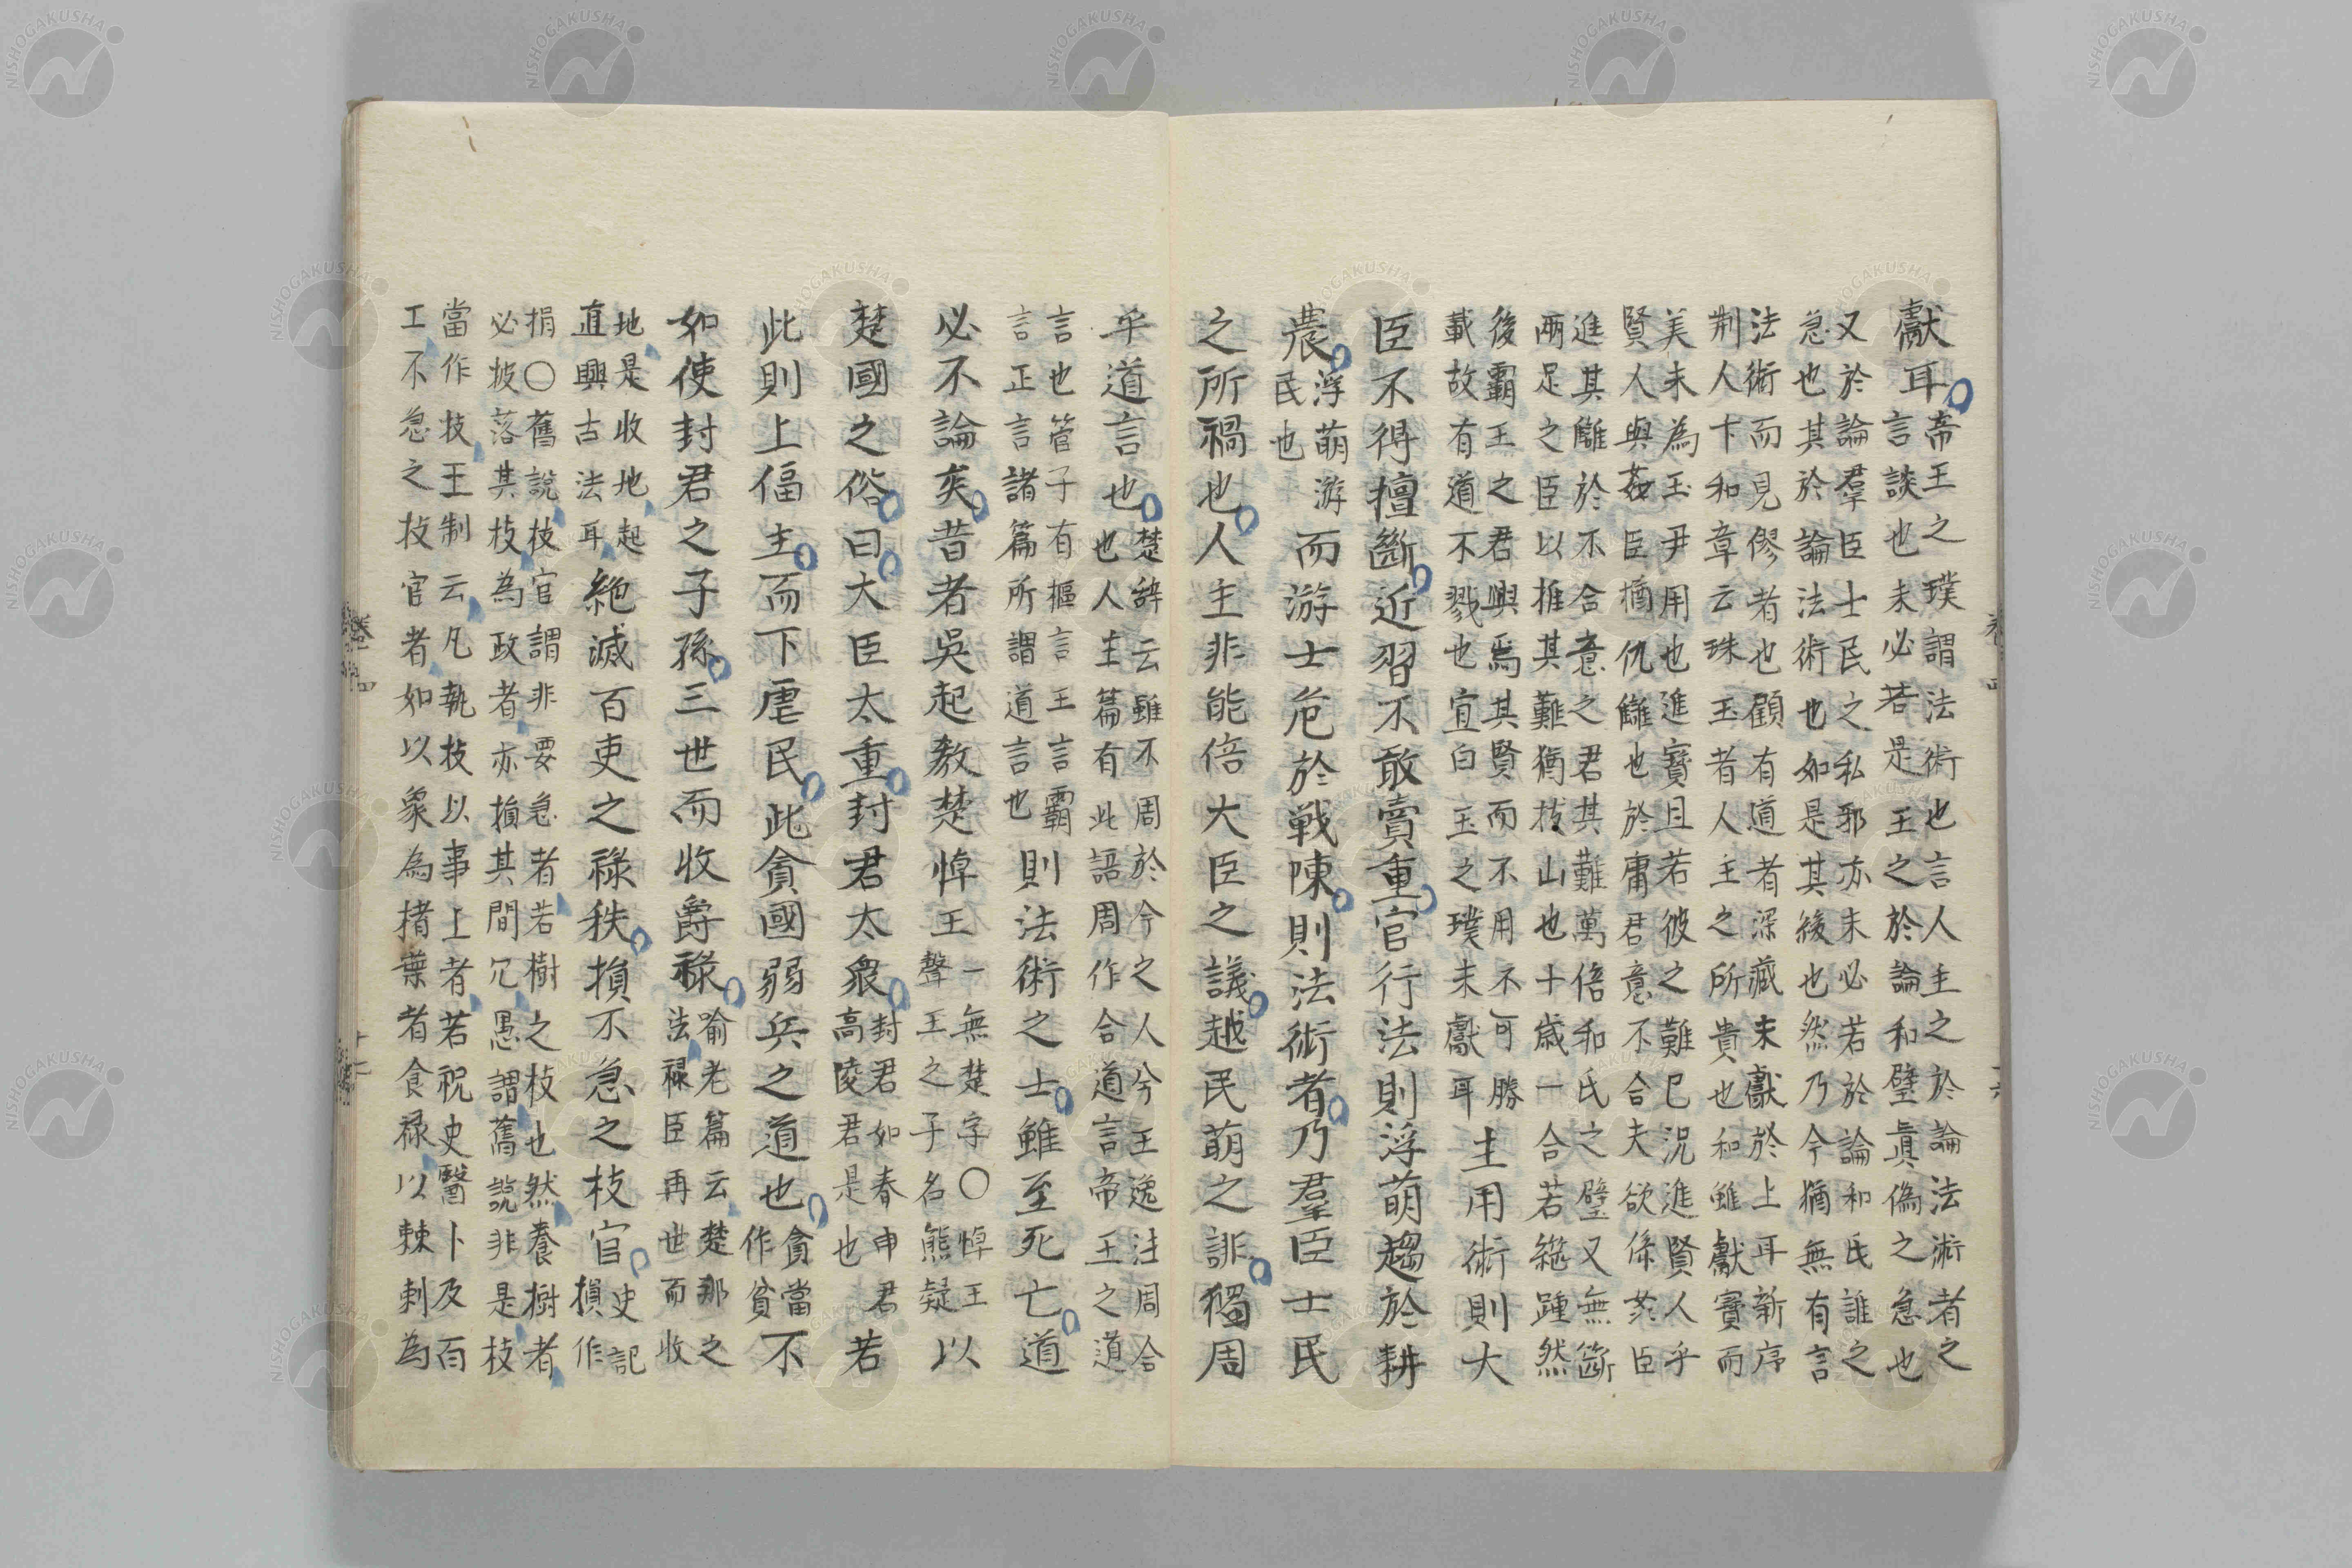 獻耳帝王之璞謂法術也言人主之於論法術者之
言談也未必若是王之於論和璧眞偽之急也
又於論羣臣士民之私邪亦未必若於論和氏誰之
急也其於論法術也如是其後也然乃今猶無有言
法術而見僇者也顧有道者深藏未獻於上耳新序
荆人卞和章云珠玉者人主之所貴也和雖獻寶而
美未為玉尹用也進寶且若彼之難巳況進賢人乎
賢人與姦臣猶仇讎也於庸君意不合夫欲係於臣
進其讎於不合意之君其難萬倍和氏之璧又無斷
兩足之臣以推其難猶拔山也十歲一合若繼踵然
後霸王之君興焉其賢而不用不可勝
載故有道不戮也宜白玉之璞未獻耳主用術則大
臣不得擅斷近習不敢賣重官行法則浮萌趨於耕
農浮萌游
民也而游士危於戦陳則法術者乃羣臣士民
之所禍也人主非能倍大臣之議越民萌之誹獨周
乎道言也楚辭云雖不周於今之人兮王逸注周合
也人主篇有此語周作合道言帝王之道
言也管子有樞言王言霸
言正言諸篇所謂道言也則法術之士雖至死亡道
必不論矣昔者吳起教楚悼王一無楚字〇悼王
聲王之子名熊疑以
楚國之俗曰大臣太重封君太衆封君如春申君
高陵君是也若
此則上偪主而下虐民此貪國弱兵之道也貪當
作貧不
如使封君之子孫三世而收爵祿喻老篇云楚那之
法祿臣再世而收
地是收地起
直興古法耳絶滅百吏之祿秩損不急之枝官史記
損作
捐〇舊說枝官謂非要急者若樹之枝也然養樹者
必披落其枝為政者亦損其間冗愚謂舊說非是枝
當作技王制云凡執技以事上者若祝史醫卜及百
工不急之技官者如以象為楮葉者食祿以棘刺為